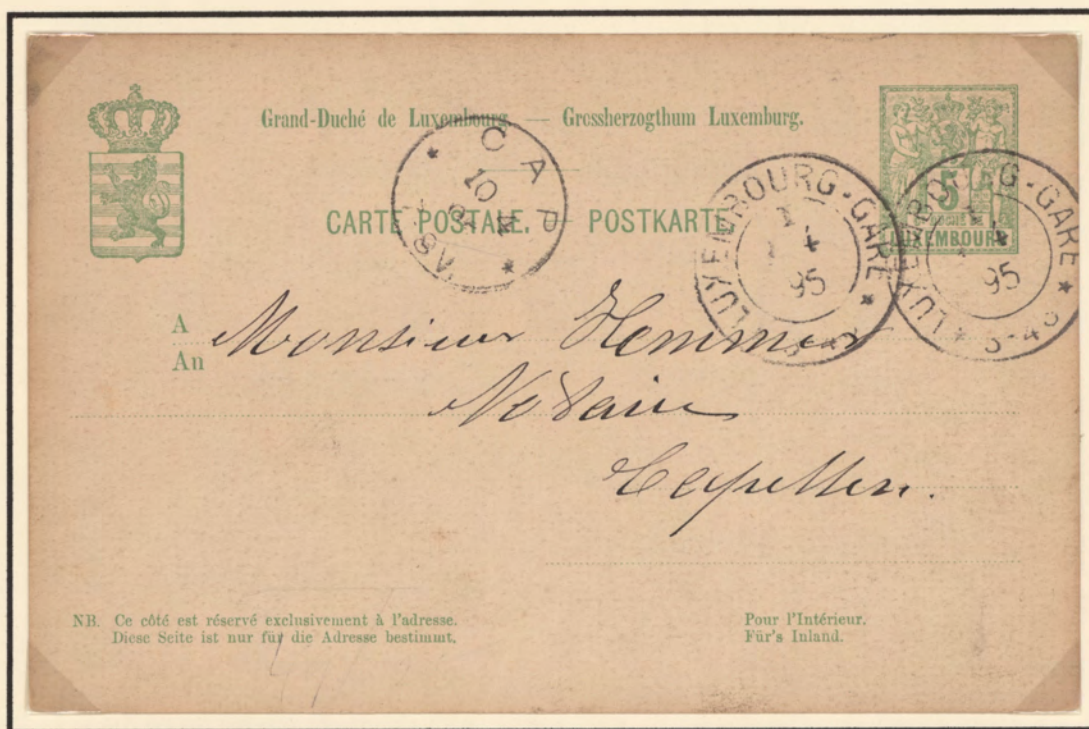 Grand-Duché de Luxembourg — Grossherzogthum Luxemburg.
CARTE POSTALE. — POSTKARTE.
5
LUXEMBOURG
CAP
10
4
LUXEMBOURG-GARE
4
95
LUXEMBOURG-GARE
4
95
5-4S
A
An
Monsieur Hemmer
Notaire
Capellen.
NB. Ce côté est réservé exclusivement à l'adresse.
Diese Seite ist nur für die Adresse bestimmt.
Pour l'Intérieur.
Für's Inland.